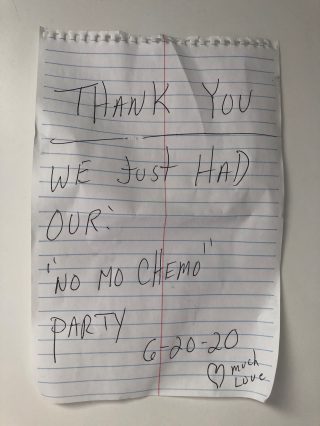 THANK YOU
WE JUST HAD
OUR:
"NO MO CHEMO"
PARTY
6-20-20
♡ much
LOVE